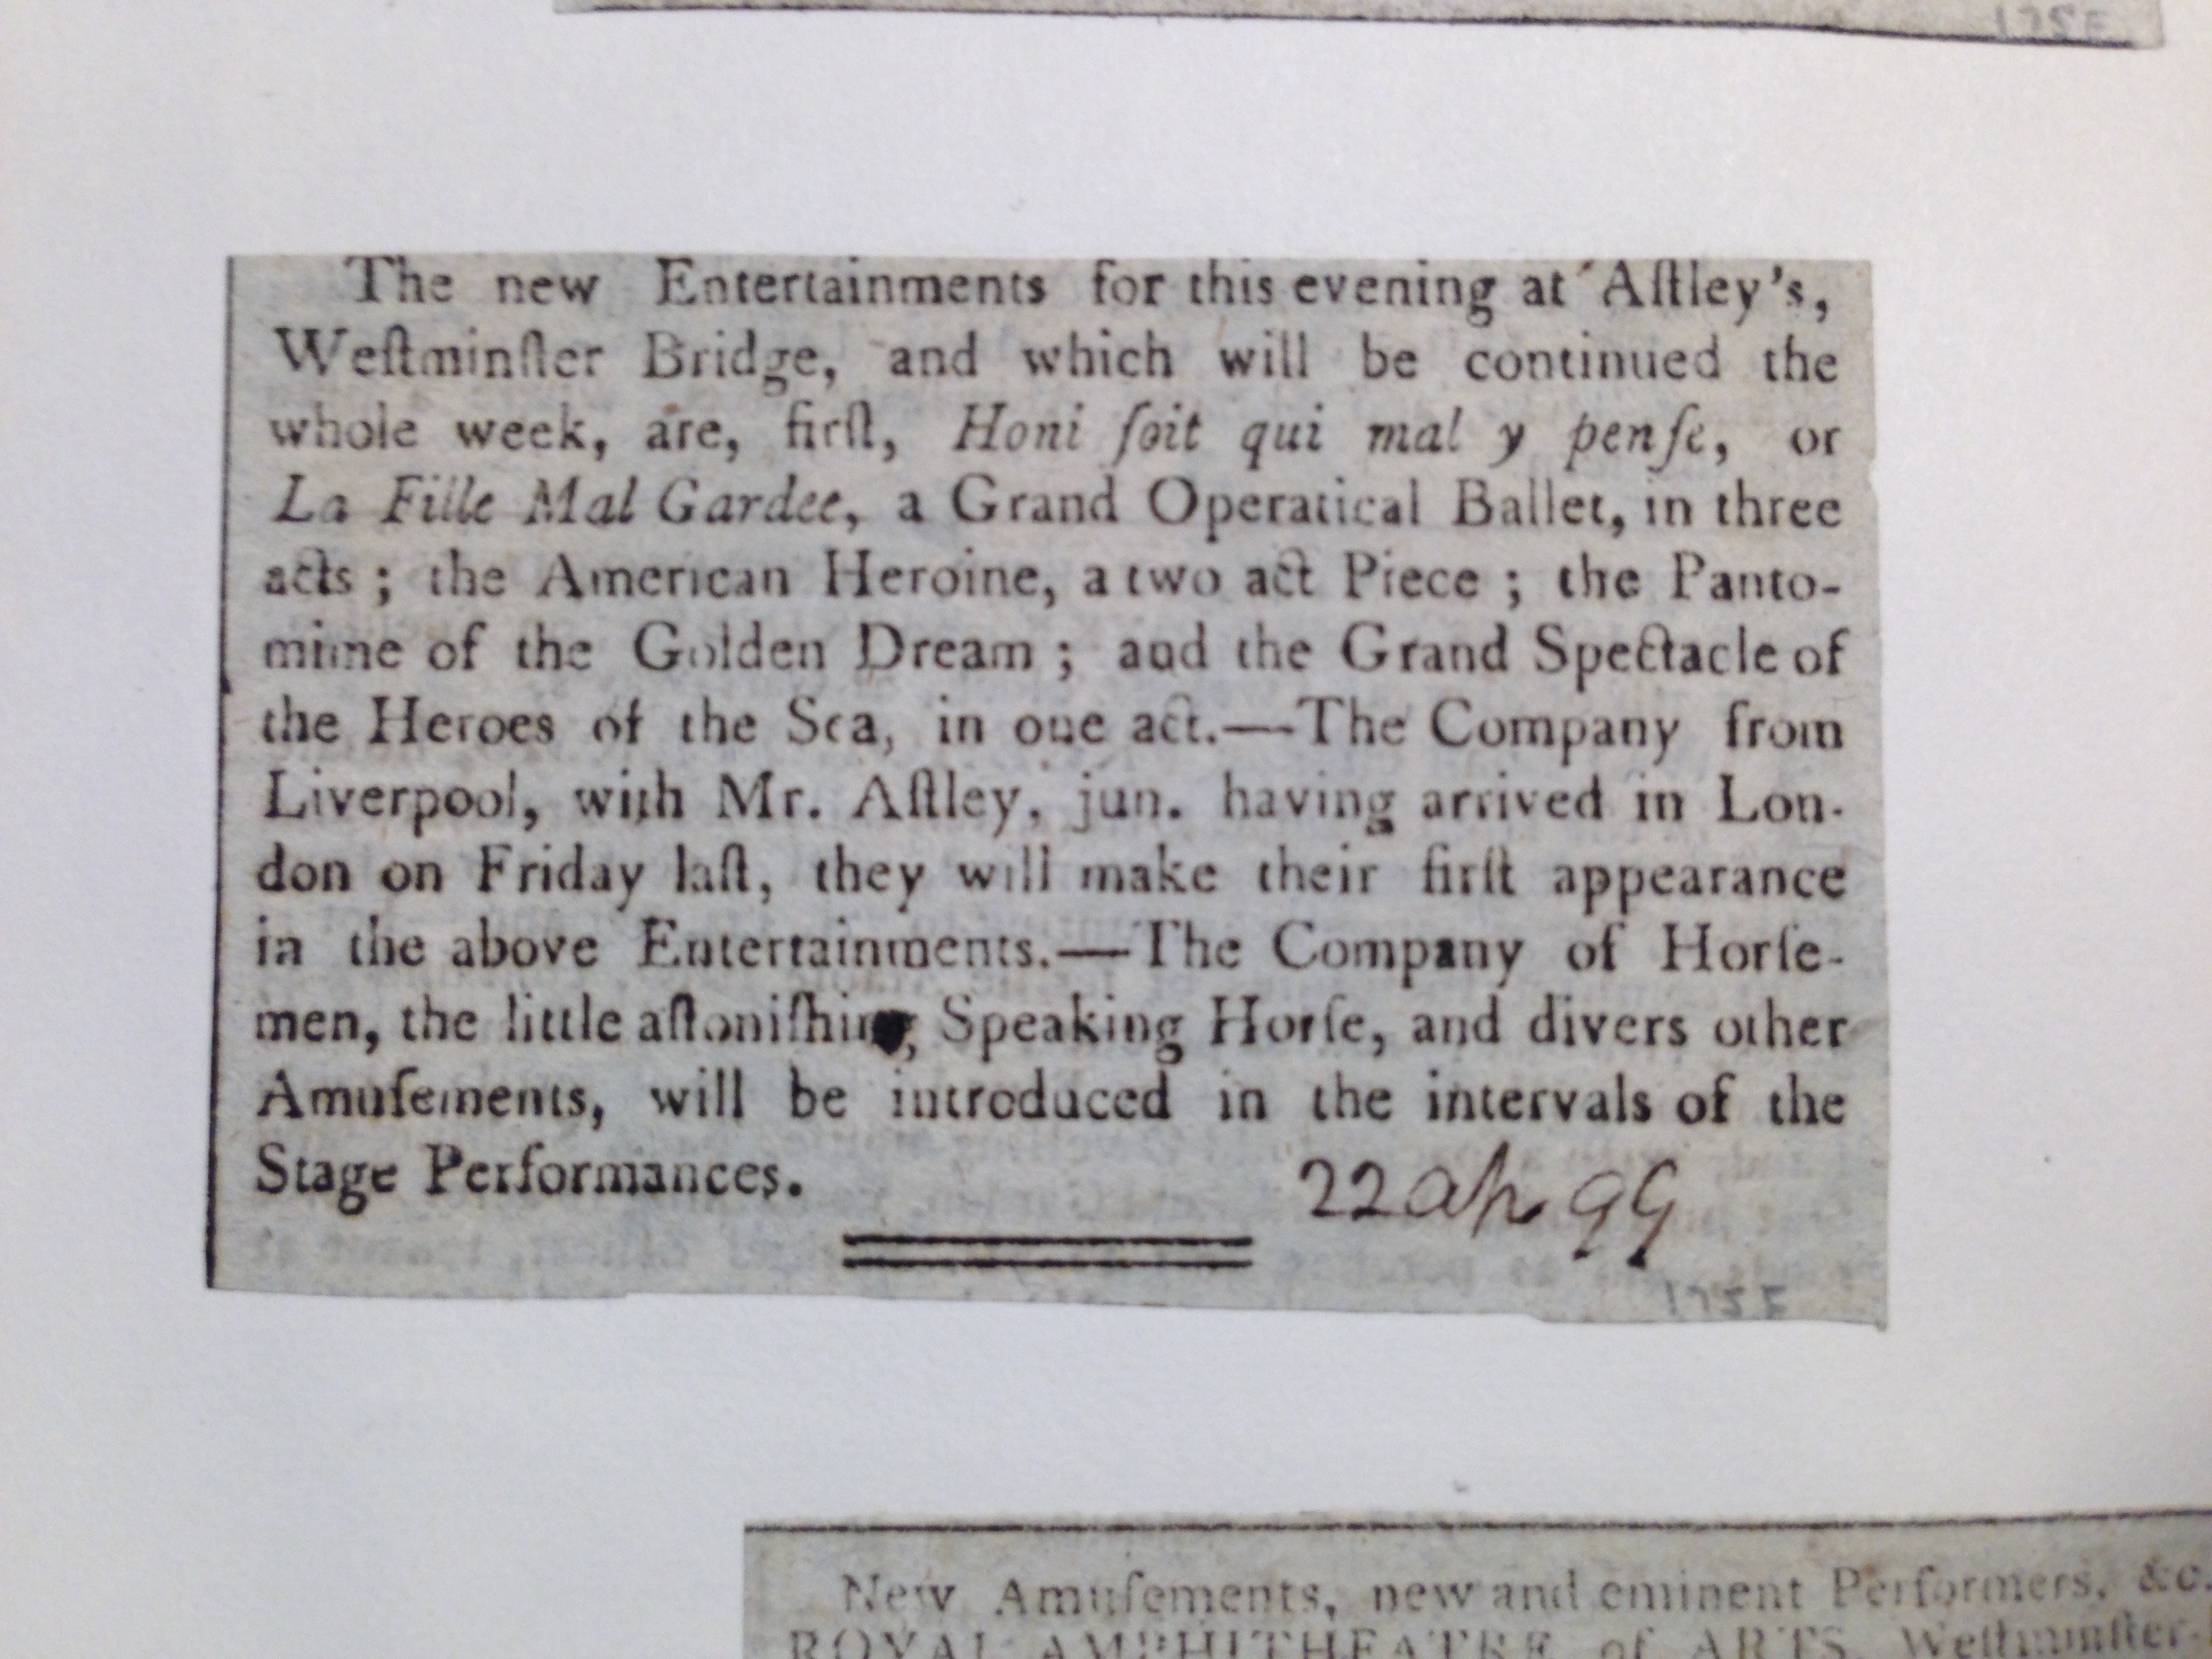 175E
The new Entertainments for this evening at Aſtley's,
Weſtminſter Bridge, and which will be continued the
whole week, are, firſt, Honi ſoit qui mal y penſe, or
La Fille Mal Gardee, a Grand Operatical Ballet, in three
acts ; the American Heroine, a two act Piece ; the Panto-
mime of the Golden Dream ; and the Grand Spectacle of
the Heroes of the Sea, in one act.—The Company from
Liverpool, with Mr. Aſtley, jun. having arrived in Lon-
don on Friday laſt, they will make their firſt appearance
in the above Entertainments.—The Company of Horſe-
men, the little aſtoniſhing Speaking Horſe, and divers other
Amuſements, will be introduced in the intervals of the
Stage Performances.
22 ap 99
175E
New Amuſements, new and eminent Performers, &c.
ROYAL AMPHITHEATRE of ARTS, Weſtminſter-